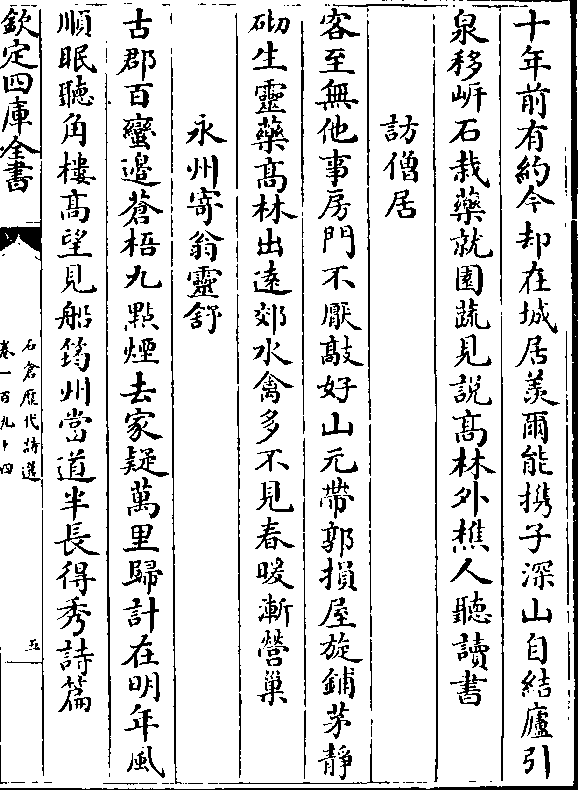 十年前有約今却在城居羨爾能携子深山自結廬引
泉移岍石栽藥就園蔬見說髙林外樵人聽讀書
訪僧居
客至無他事房門不厭敲好山元帶郭損屋旋鋪茅靜
砌生靈藥髙林出逺郊水禽多不見春暖漸營巢
永州寄翁靈舒
古郡百蠻邉蒼梧九點煙去家疑萬里歸計在明年風
順眠聽角樓髙望見船筠州當道半長得秀詩篇
欽定四庫全書
石倉歴代詩選
卷一百九十四
五